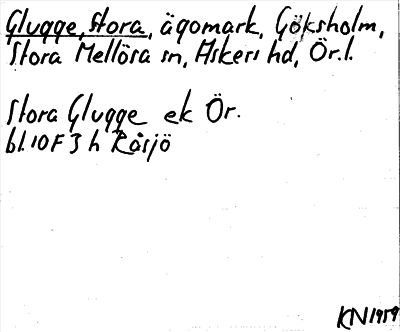 Glugge, Stora, ägomark, Göksholm,
Stora Mellösa sn, Askers hd, Ör.l.
Stora Glugge ek Ör.
bl. 10F 3 h Råsjö
KN1959